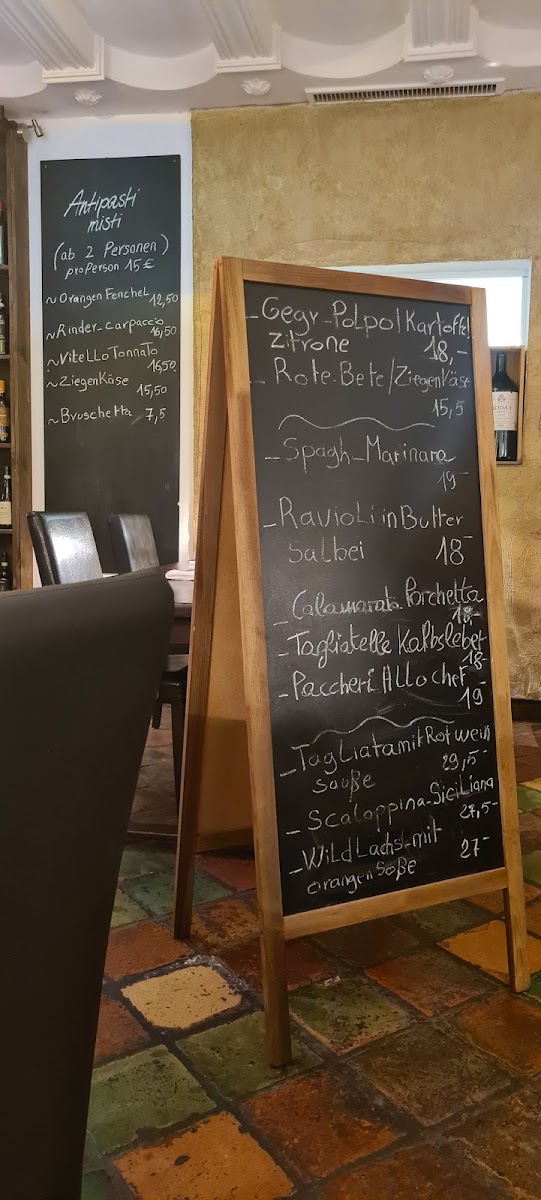 Antipasti
misti
(ab 2 Personen)
pro Person 15 €
~ Orangen Fenchel 12,50
~ Rinder-carpaccio
16,50
~ Vitello Tonnato
16,50
~ Ziegenkäse
15,50
~ Bruschetta 7,5
- Gegr. Polpo/Kartoffel
Zitrone 18,-
- Rote-Bete/Ziegenkäse
15,5
- Spagh-Marinara
19-
- Ravioli in Butter
Salbei 18-
- Calamarata Porchetta
18,-
- Tagliatelle Kalbsleber
18-
- Paccheri Allo chef
19-
- Tagliata mit Rotwein
souße 29,5-
- Scaloppina-Siciliana
27,5-
- Wild Lachs-mit
orangen soße 27-